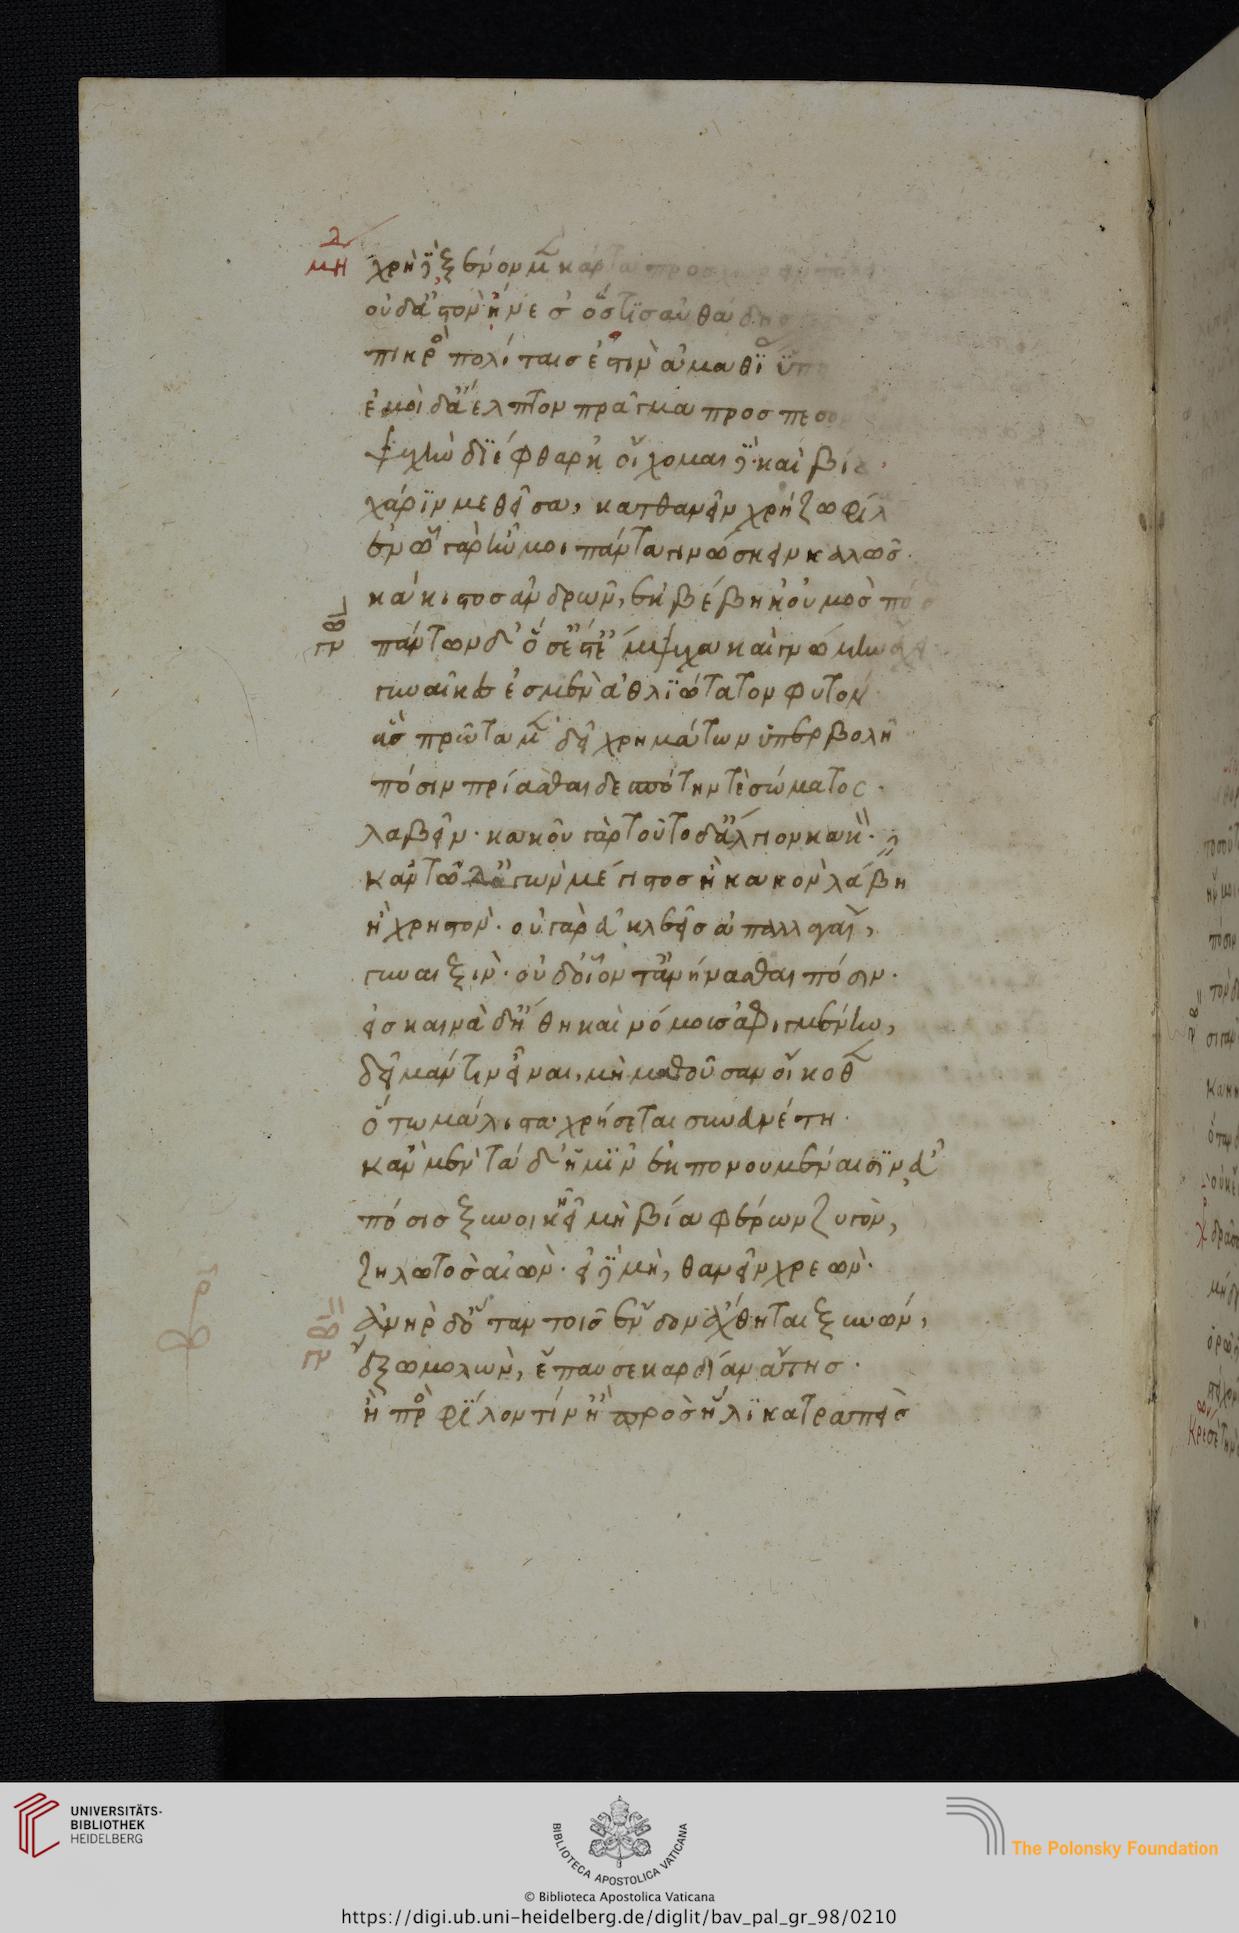 χρὴ δὲ ξένον μὲν κάρτα προσ
οὐδ' ἀστὸν ἤινεσ' ὅστις αὐθάδης
πικρὸς πολίταις ἐστὶν ἀμαθίας ὕπο
ἐμοὶ δ' ἄελπτον πρᾶγμα προσπεσὸν
ψυχὴν διέφθαρκ' οἴχομαι δὲ καὶ βίου
χάριν μεθεῖσα, κατθανεῖν χρήζω φίλ
ἐν ᾧ γὰρ ἦν μοι πάντα γινώσκειν καλῶς.
κάκιστος ἀνδρῶν, ἐκβέβηκ' οὑμὸς πόσ
πάντων δ' ὅσ' ἔστ' ἔμψυχα καὶ γνώμην ἔχει
γυναῖκές ἐσμεν ἀθλιώτατον φυτόν
ἃς πρῶτα μὲν δεῖ χρημάτων ὑπερβολῆ
πόσιν πρίασθαι δεσπότην τὲ σώματος.
λαβεῖν. κακοῦ γὰρ τοῦτο δ' ἄλγιον κακόν.
κἀν τῷδ' ἀγὼν μέγιστος ἢ κακὸν λάβη
ἢ χρηστόν. οὐ γὰρ εὐκλεεῖς ἀπαλλαγαὶ,
γυναιξίν. οὐδ' οἷόν τ' ἀνήνασθαι πόσιν.
εἰς καινὰ δ' ἤθη καὶ νόμους ἀφιγμένην,
δεῖ μάντιν εἶναι, μὴ μαθοῦσαν οἴκοθεν
ὅτω μάλιστα χρήσεται συνευνέτη.
κἂν μὲν τάδ' ἡμῖν ἐκπονουμέναισιν εὖ
πόσις ξυνοικῆ μὴ βία φέρων ζυγὸν,
ζηλωτὸς αἰών. εἰ δὲ μὴ, θανεῖν χρεών.
ἀνὴρ δ' ὅταν τοῖς ἔνδον ἄχθηται ξυνών,
ἔξω μολὼν, ἔπαυσε καρδίαν ἄσης.
ἢ πρὸς φίλον τίν' ἢ πρὸς ἥλικα τραπεὶς
UNIVERSITÄTS-
BIBLIOTHEK
HEIDELBERG
BIBLIOTECA APOSTOLICA VATICANA
The Polonsky Foundation
© Biblioteca Apostolica Vaticana
https://digi.ub.uni-heidelberg.de/diglit/bav_pal_gr_98/0210